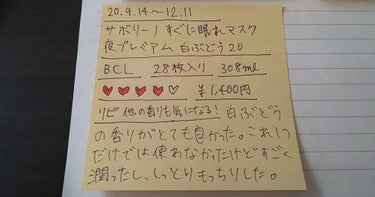 20.9.14〜12.11
サボリーノ すぐに眠れマスク
夜プレミアム 白ぶどう20
BCL 28枚入り 308ml
♥♥♥♥♡ ¥1,400円
リピ 他の香りも気になる! 白ぶどう
の香りがとても良かった。これ1つ
だけでは使わなかったけどすごく
潤ったし、しっとりもっちりした。